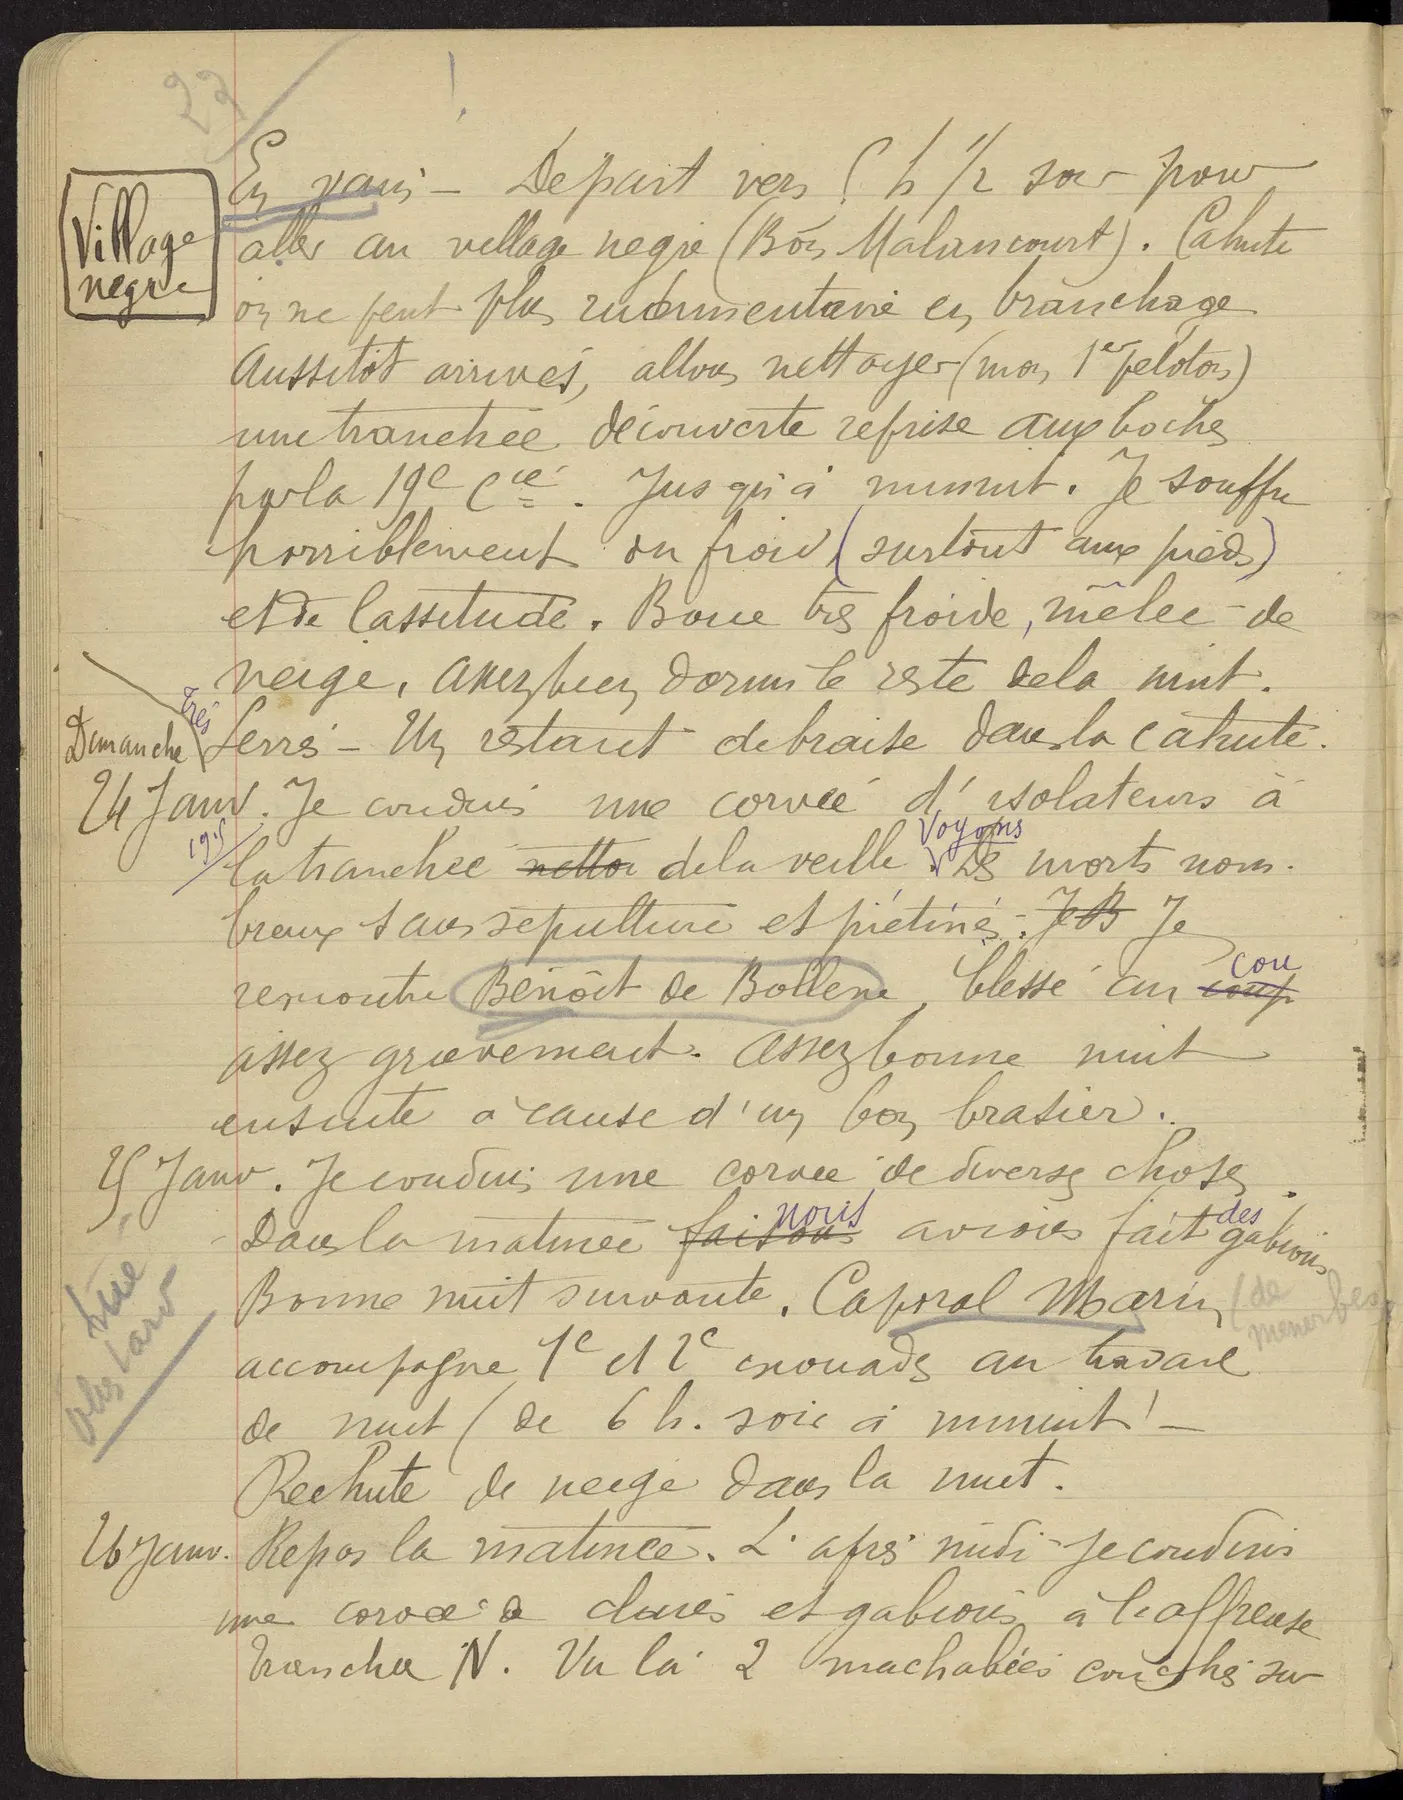 23
Village
negre
En vain – Départ vers 5 h 1/2 soir pour
aller au village negre (Bois Malancourt). Cahute
on ne peut plus rudimentaire en branchage
Aussitôt arrivés, allons nettoyer (mon 1er peloton)
une tranchée découverte reprise aux boches
par la 19e Cie. Jusqu'à minuit. Je souffre
horriblement du froid (surtout aux pieds)
et de lassitude. Boue très froide, mêlée de
neige. Assez bien dormi le reste de la nuit.
très
Dimanche Serré – Un restant de braise dans la cahute.
24 Janv. Je conduis une corvée d'isolateurs à
1915 Voyons
la tranchée netto de la veille. Des morts nom-
breux sans sépulture et piétinés. Je B Je
cou
rencontre Bénoit de Bollene, blessé au coup
assez grievement. Assez bonne nuit
ensuite à cause d'un bon brasier.
25 Janv. Je conduis une corvée de diverses choses.
nous des
Dans la matinée faisons avions fait gabions
Bonne nuit suivante. Caporal Marin (de
menerbes)
accompagne 1e et 2e escouades au travail
de nuit (de 6 h. soir à minuit) –
Rechute de neige dans la nuit.
tué
plus tard
26 Janv. Repos la matinée. L'après midi je conduis
une corvée de claies et gabions à l'affreuse
tranchée N. Vu là 2 machabées couchés sur